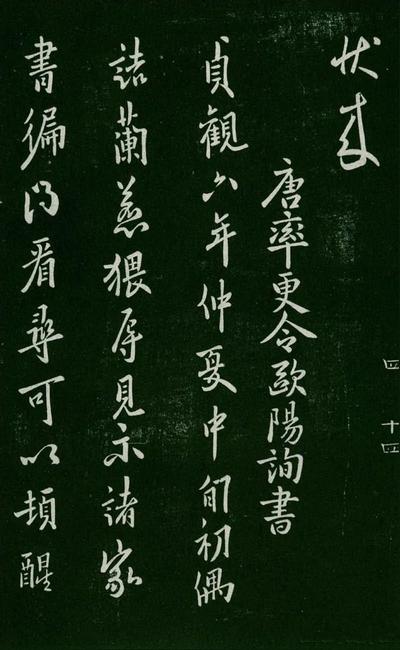 伏
唐率更令歐陽詢書
貞觀六年仲夏中旬初偶
詣蘭惹猥辱見示諸家
書徧得看尋可以頓醒
四 十四